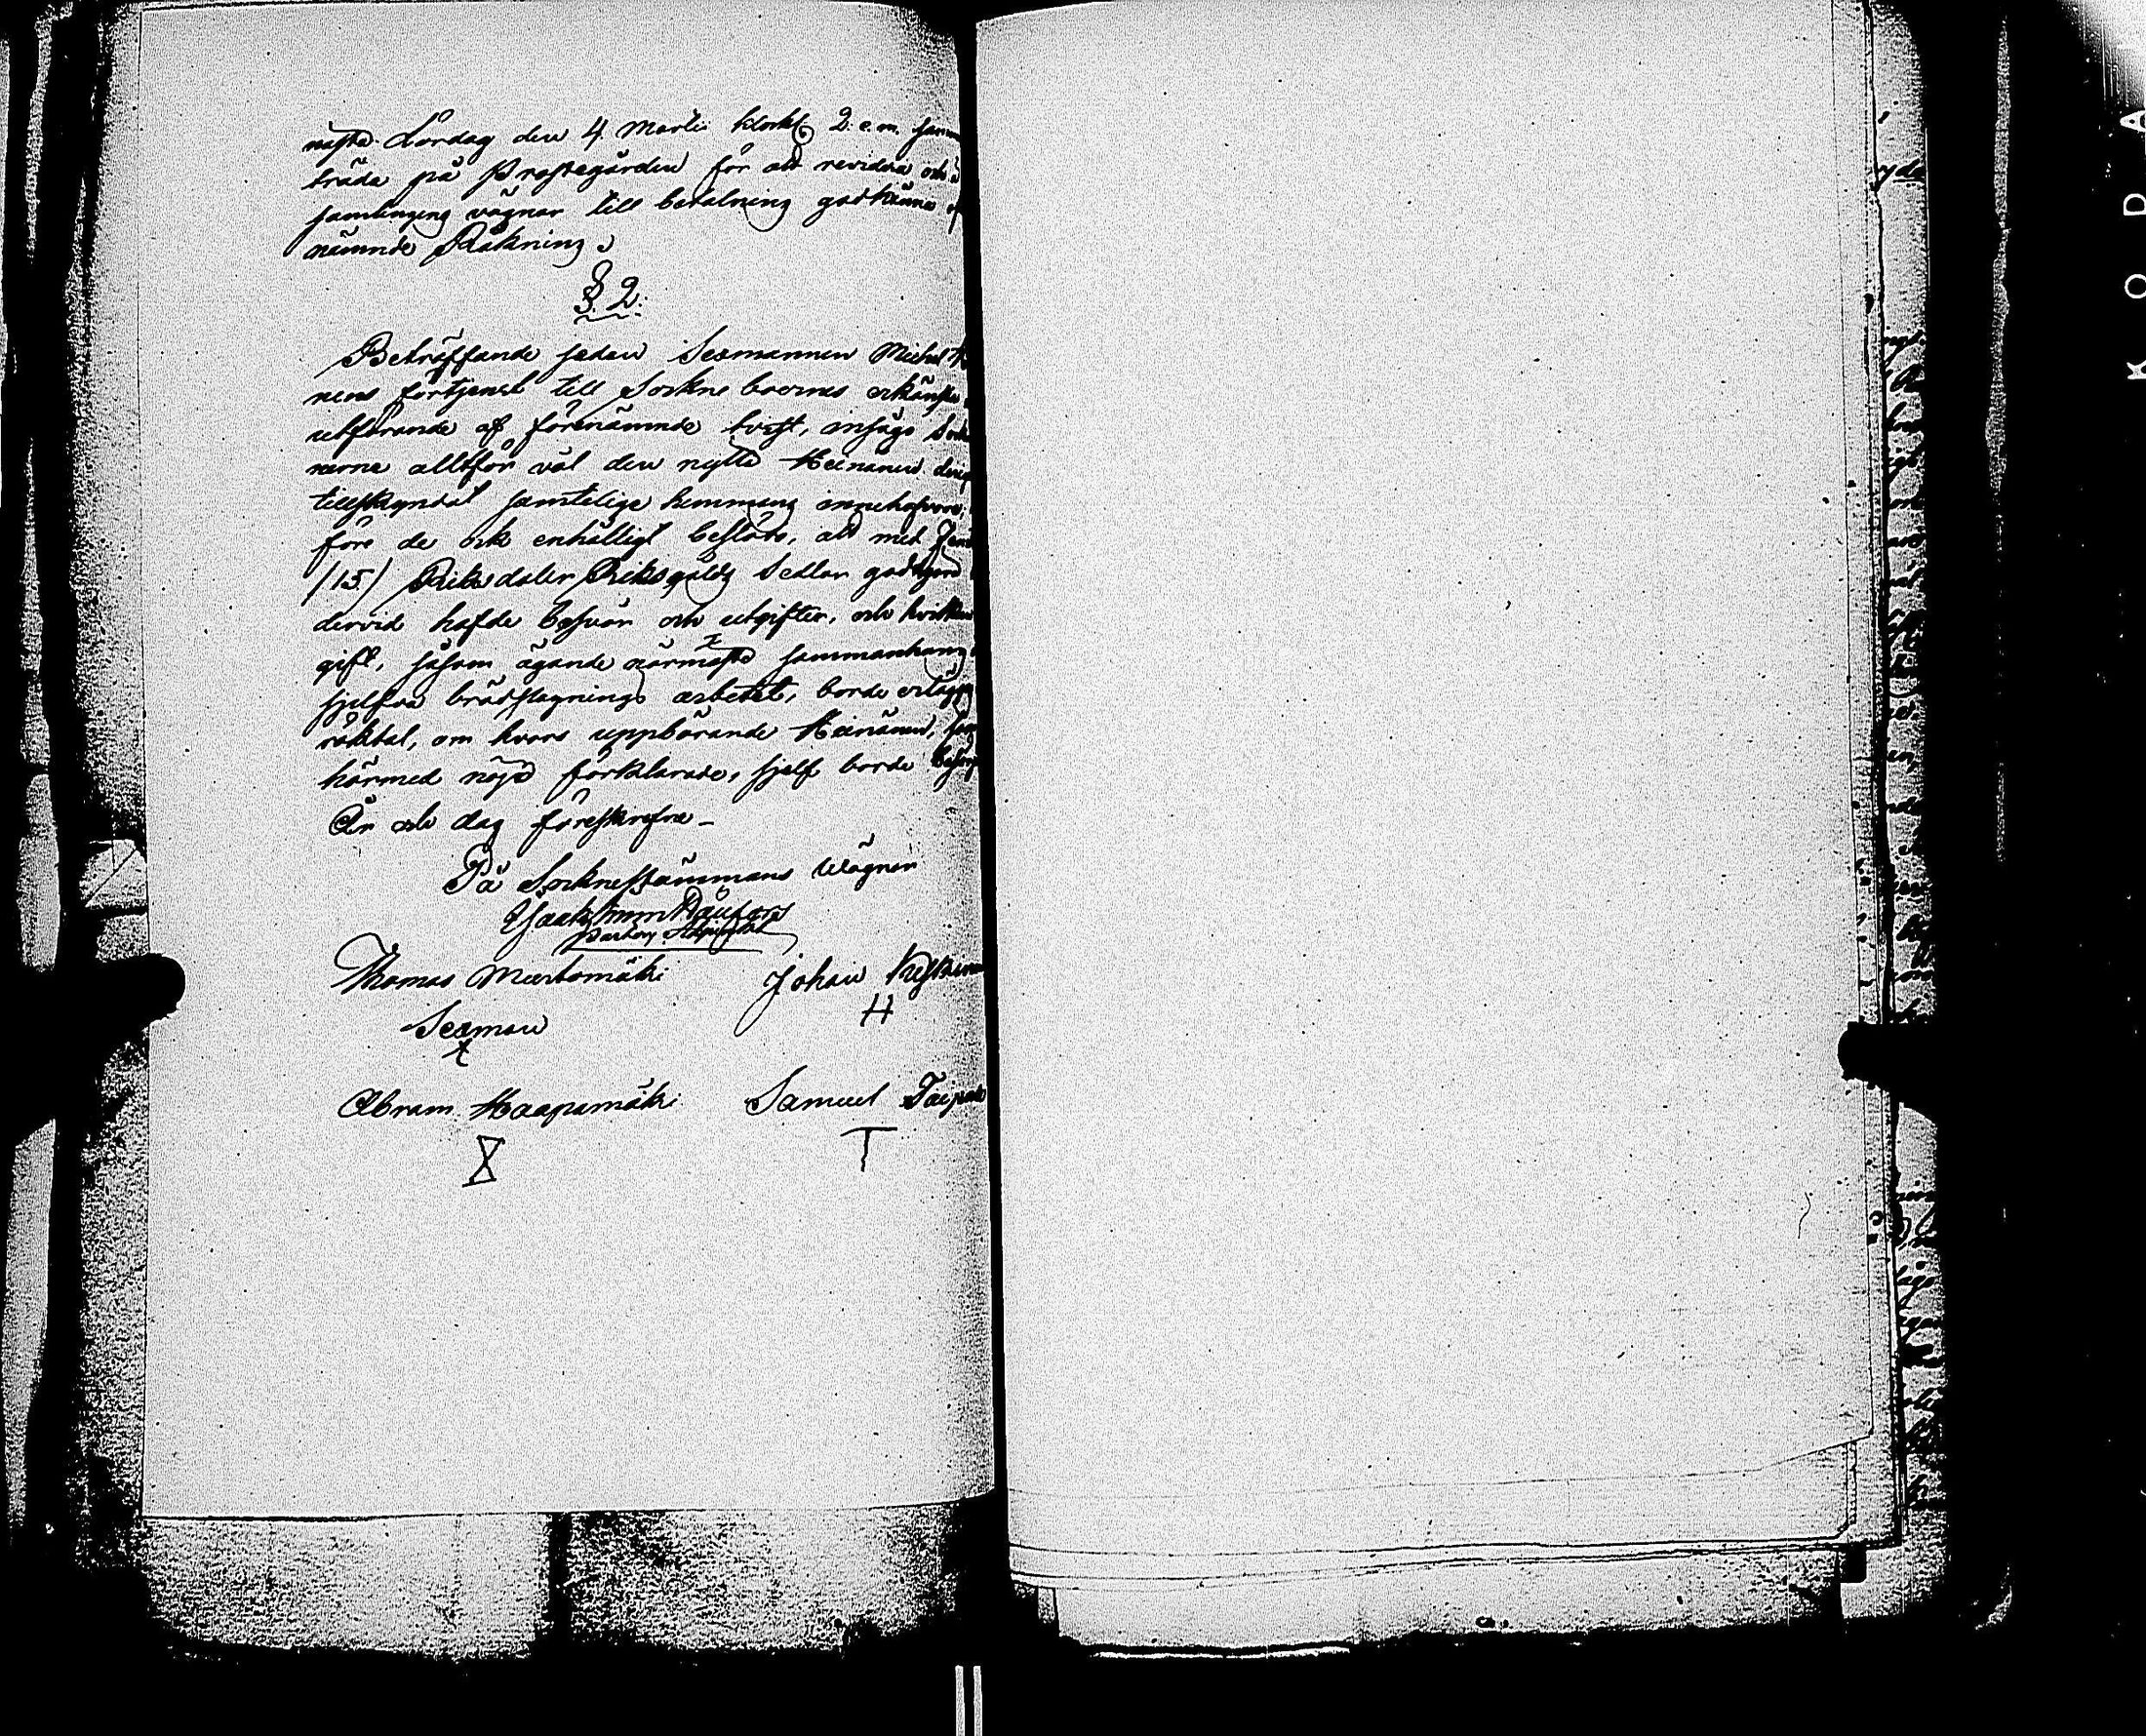 nästa Lördag den 4. Martii klock. 2. e. m. samm
träda på Prostegården för att revidera och å
samlingens vägnar till betalning godkänna of
nämnde Räkning.
§. 2.
Beträffande sedan Sexmannen Michel
nens förtjenst till Sockne boernes erkänsla
utförande af förenämnde tvist, insågo Sock
nerne alltför väl den nytta Heinänen derig
tillskyndat samtelige hemmans innehafvare,
före de ock enhälligt beslöto, att med Femt
/15/ Riksdaler Riksgälds Sedlar godtgöra
dervid hafde besvär och utgifter, och hvilken
gift, såsom ägande närmaste sammanhang
sjelfva brädslagnings arbetet, borde erlägg
röktal, om hvars uppbärande Heinänen, som
härmed nöjd förklarade, sjelf borde besörj
År och dag föreskrefne –
På Sockneståmmans Wägnar
Thomas Murtomäki Johan Kuskinen
Sexman H
x
Abram Haapamäki Samuel Taipale
T
K O D A